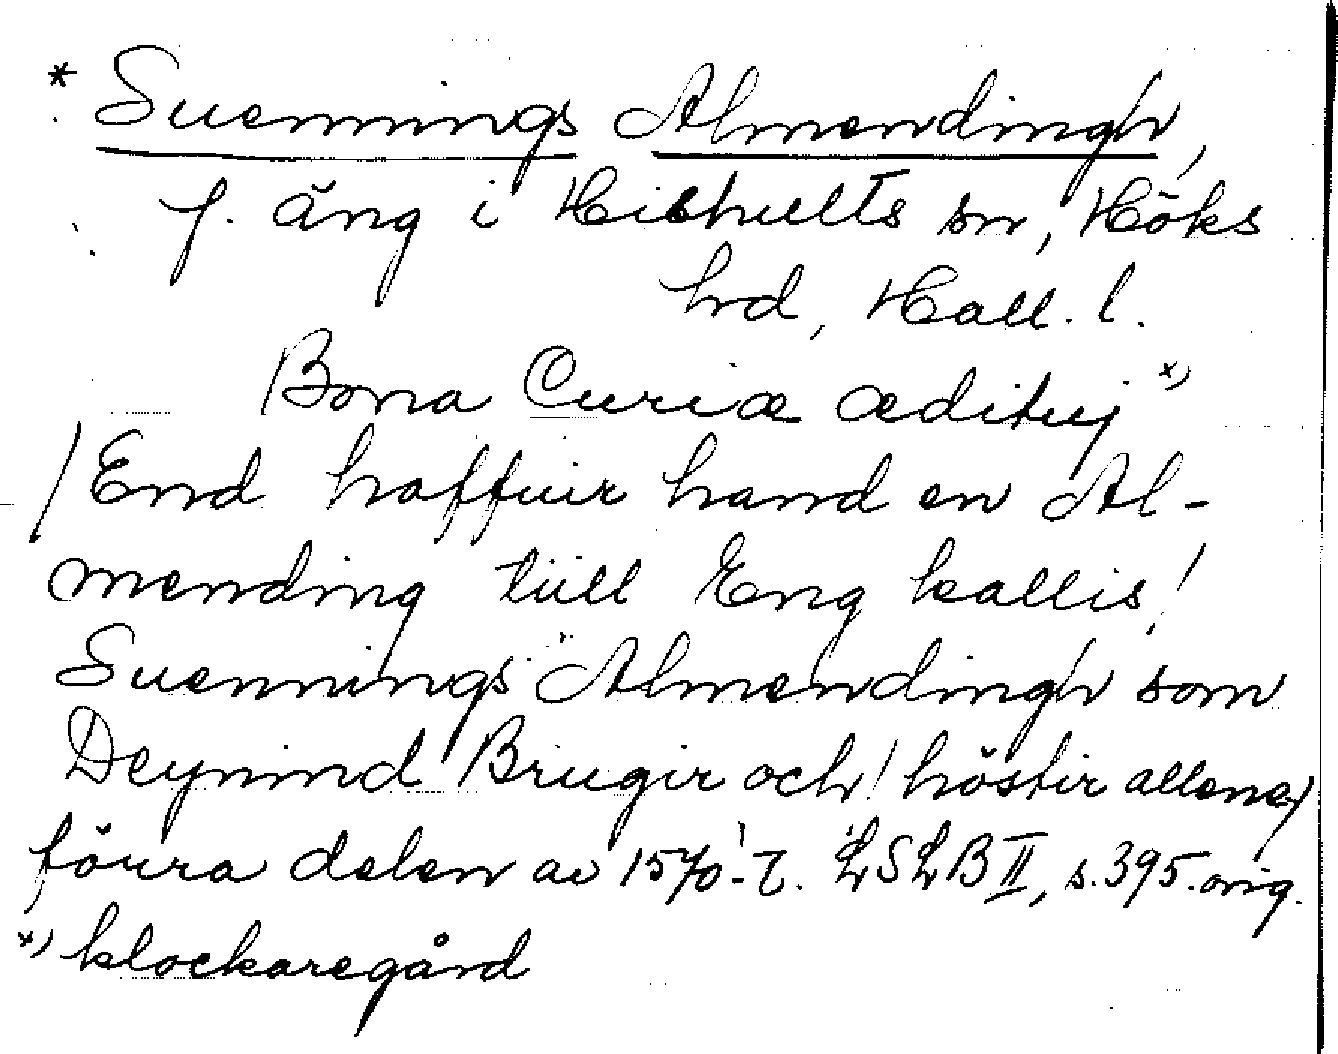 * Suennings Almendingh,
f. äng i Hishults sn, Höks
hrd, Hall. l.
Bona Curiæ ædituj x)
/End haffuir hand en Al-
mending tiill Eng kallis!
Suennings Almendingh som
Deynind Brugir och! höstir allene/
föura delen av 1570-t. LSLB II, s. 395. orig.
x) klockaregård